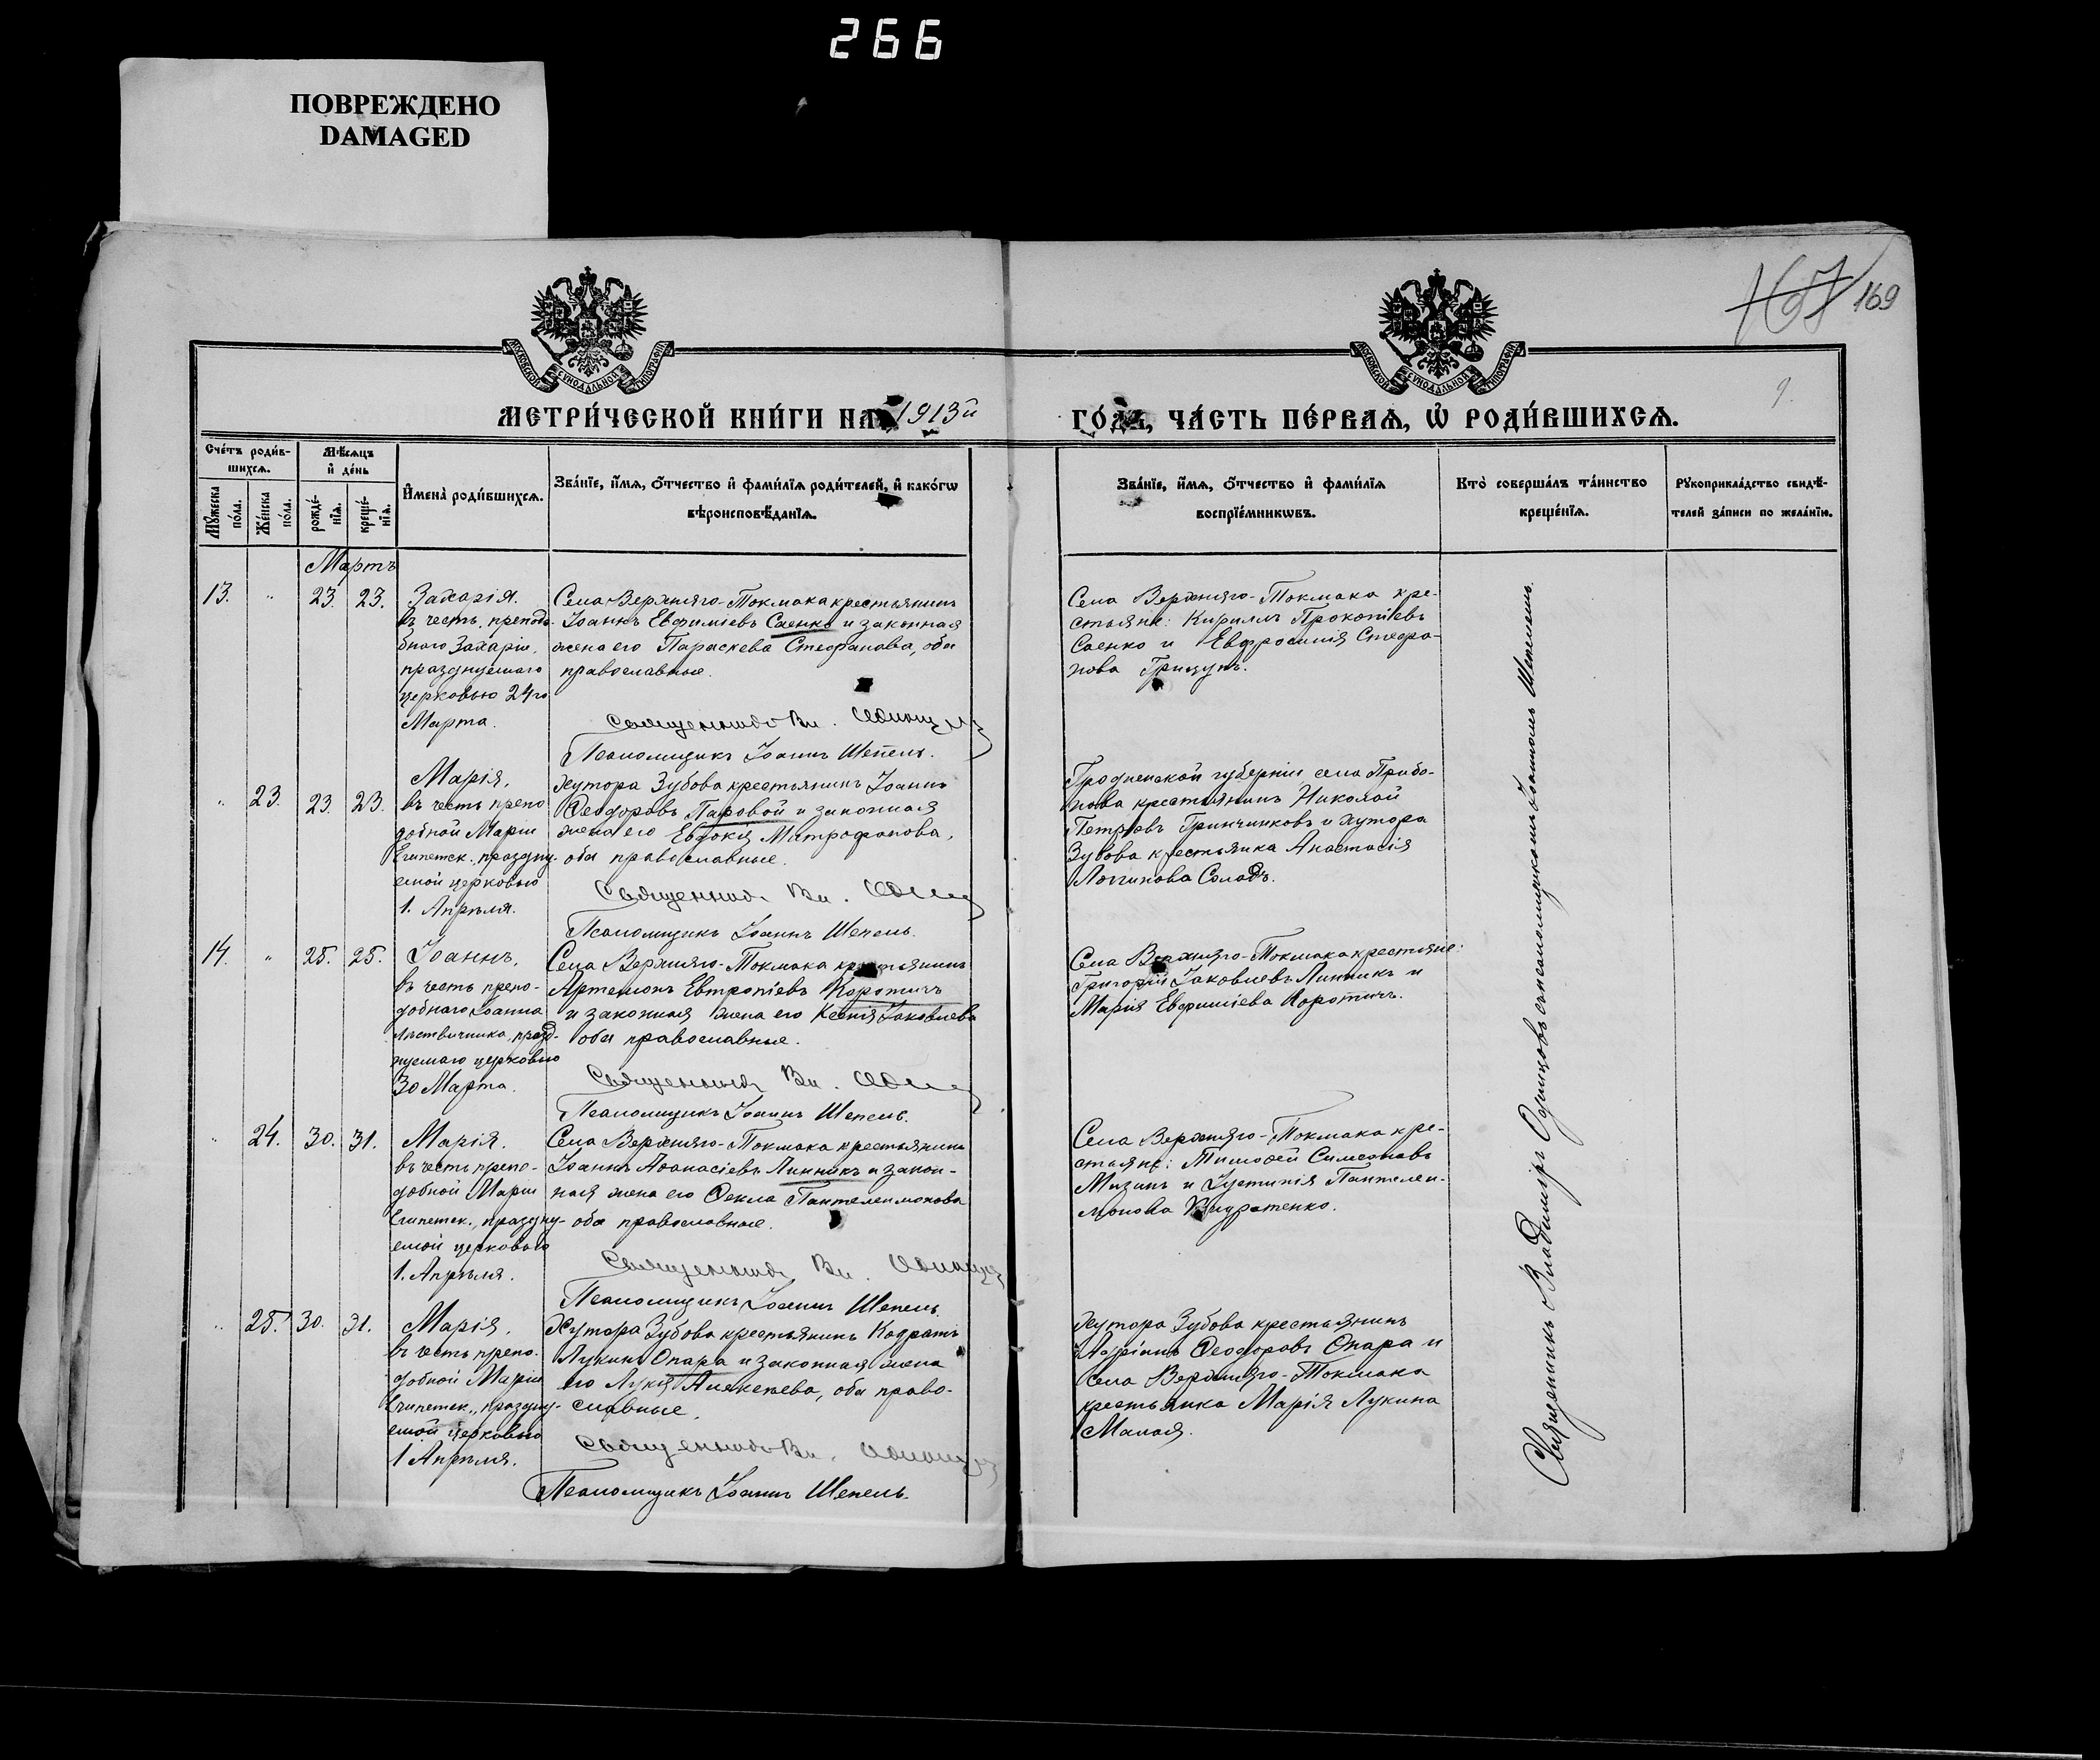 266
ПОВРЕЖДЕНО
DAMAGED
167 169
9.
МОСКОВСКОЙ СѴНОДАЛЬНОЙ ТИПОГРАФІИ
МОСКОВСКОЙ СѴНОДАЛЬНОЙ ТИПОГРАФІИ
МЕТРИ́ЧЕСКОЙ КНИ́ГИ НА 1913й
ГО́ДЪ, ЧА́СТЬ ПЕ́РВАѦ, Ѡ҆ РОДИ́ВШИХСѦ.
Сче́тъ роди́в-
шихсѧ.
Мꙋ́жеска по́ла.
Же́нска по́ла.
Мѣ́сѧцъ
и҆ де́нь
рожде́-
нїѧ.
креще́-
нїѧ.
И҆мена̀ роди́вшихсѧ.
Зва́нїе, и҆́мѧ, ѻ҆́тчество и҆ фами́лїѧ роди́телей, и҆ како́гѡ
вѣроисповѣ́данїѧ.
Зва́нїе, и҆́мѧ, ѻ҆́тчество и҆ фами́лїѧ
воспрїе́мникѡвъ.
Кто̀ соверша́лъ та́инство
креще́нїѧ.
Рꙋкоприкла́дство свидѣ́-
телей за́писи по жела́нїю.
Мартъ
13. " 23. 23.
Захарія.
въ честь препод-
бнаго Захаріи,
празднуемаго
церковью 24го
Марта.
Села Верхняго-Токмака крестьянинъ
Іоаннъ Евфиміевъ Саенко и законная
жена его Параскева Стефанова, оба
православные.
Священникъ Вл. Одинц
Псаломщикъ Іоаннъ Шепель.
Села Верхняго-Токмака кре-
стьяне: Кириллъ Прокопіевъ
Саенко и Евфросинія Стефа-
нова Грицунъ.
" 23. 23. 23.
Марія,
въ честь препо
добной Маріи
Египетск., праздну-
емой церковью
1. Апрѣля.
Хутора Зубова крестьянинъ Іоаннъ
Ѳеодоровъ Паровой и законная
жена его Евдокія Митрофанова,
оба православные.
Священникъ Вл. Один
Псаломщикъ Іоаннъ Шепель.
Гродненской губерніи, села
крестьянинъ Николай
Петровъ Гринчинковъ и хутора
Зубова крестьянка Анастасія
Логгинова Солодъ.
14. " 25. 25.
Іоаннъ,
въ честь препо-
добнаго Іоанна
Лѣствичника, празд-
нуемаго церковью
30 Марта.
Села Верхняго-Токмака крестьянинъ
Артемонъ Евтропіевъ Коротичъ
и законная жена его Ксенія Іаковлева
оба православные.
Священникъ Вл. Один
Псаломщикъ Іоаннъ Шепель.
Села Верхняго-Токмака крестьяне:
Григорій Іаковлевъ Линникъ и
Марія Евфиміева Коротичъ.
" 24. 30. 31.
Марія.
въ честь препо-
добной Маріи
Египетск., праздну-
емой церковью
1. Апрѣля.
Села Верхняго-Токмака крестьянинъ
Іоаннъ Аѳанасіевъ Линникъ и закон-
ная жена его Ѳекла Пантелеимонова
оба православные.
Священникъ Вл. Одинц
Псаломщикъ Іоаннъ Шепель
Села Верхняго-Токмака кре-
стьяне: Тимоѳей Симеоновъ
Мизинъ и Іустинія Пантелеи-
монова
" 25. 30. 31.
Марія,
въ честь препо-
добной Маріи
Египетск., праздну-
емой церковью
1 Апрѣля.
Хутора Зубова крестьянинъ Кодратъ
Лукинъ Опара и законная жена
его Лукія Алексѣева, оба право-
славные.
Священникъ Вл. Одинц
Псаломщикъ Іоаннъ Шепель.
Хутора Зубова крестьянинъ
Адріанъ Ѳеодоровъ Опара и
Села Верхняго-Токмака
крестьянка Марія Лукина
Малая.
Священникъ Владиміръ Одинцовъ съ псаломщикомъ Іоанномъ Шепелемъ.